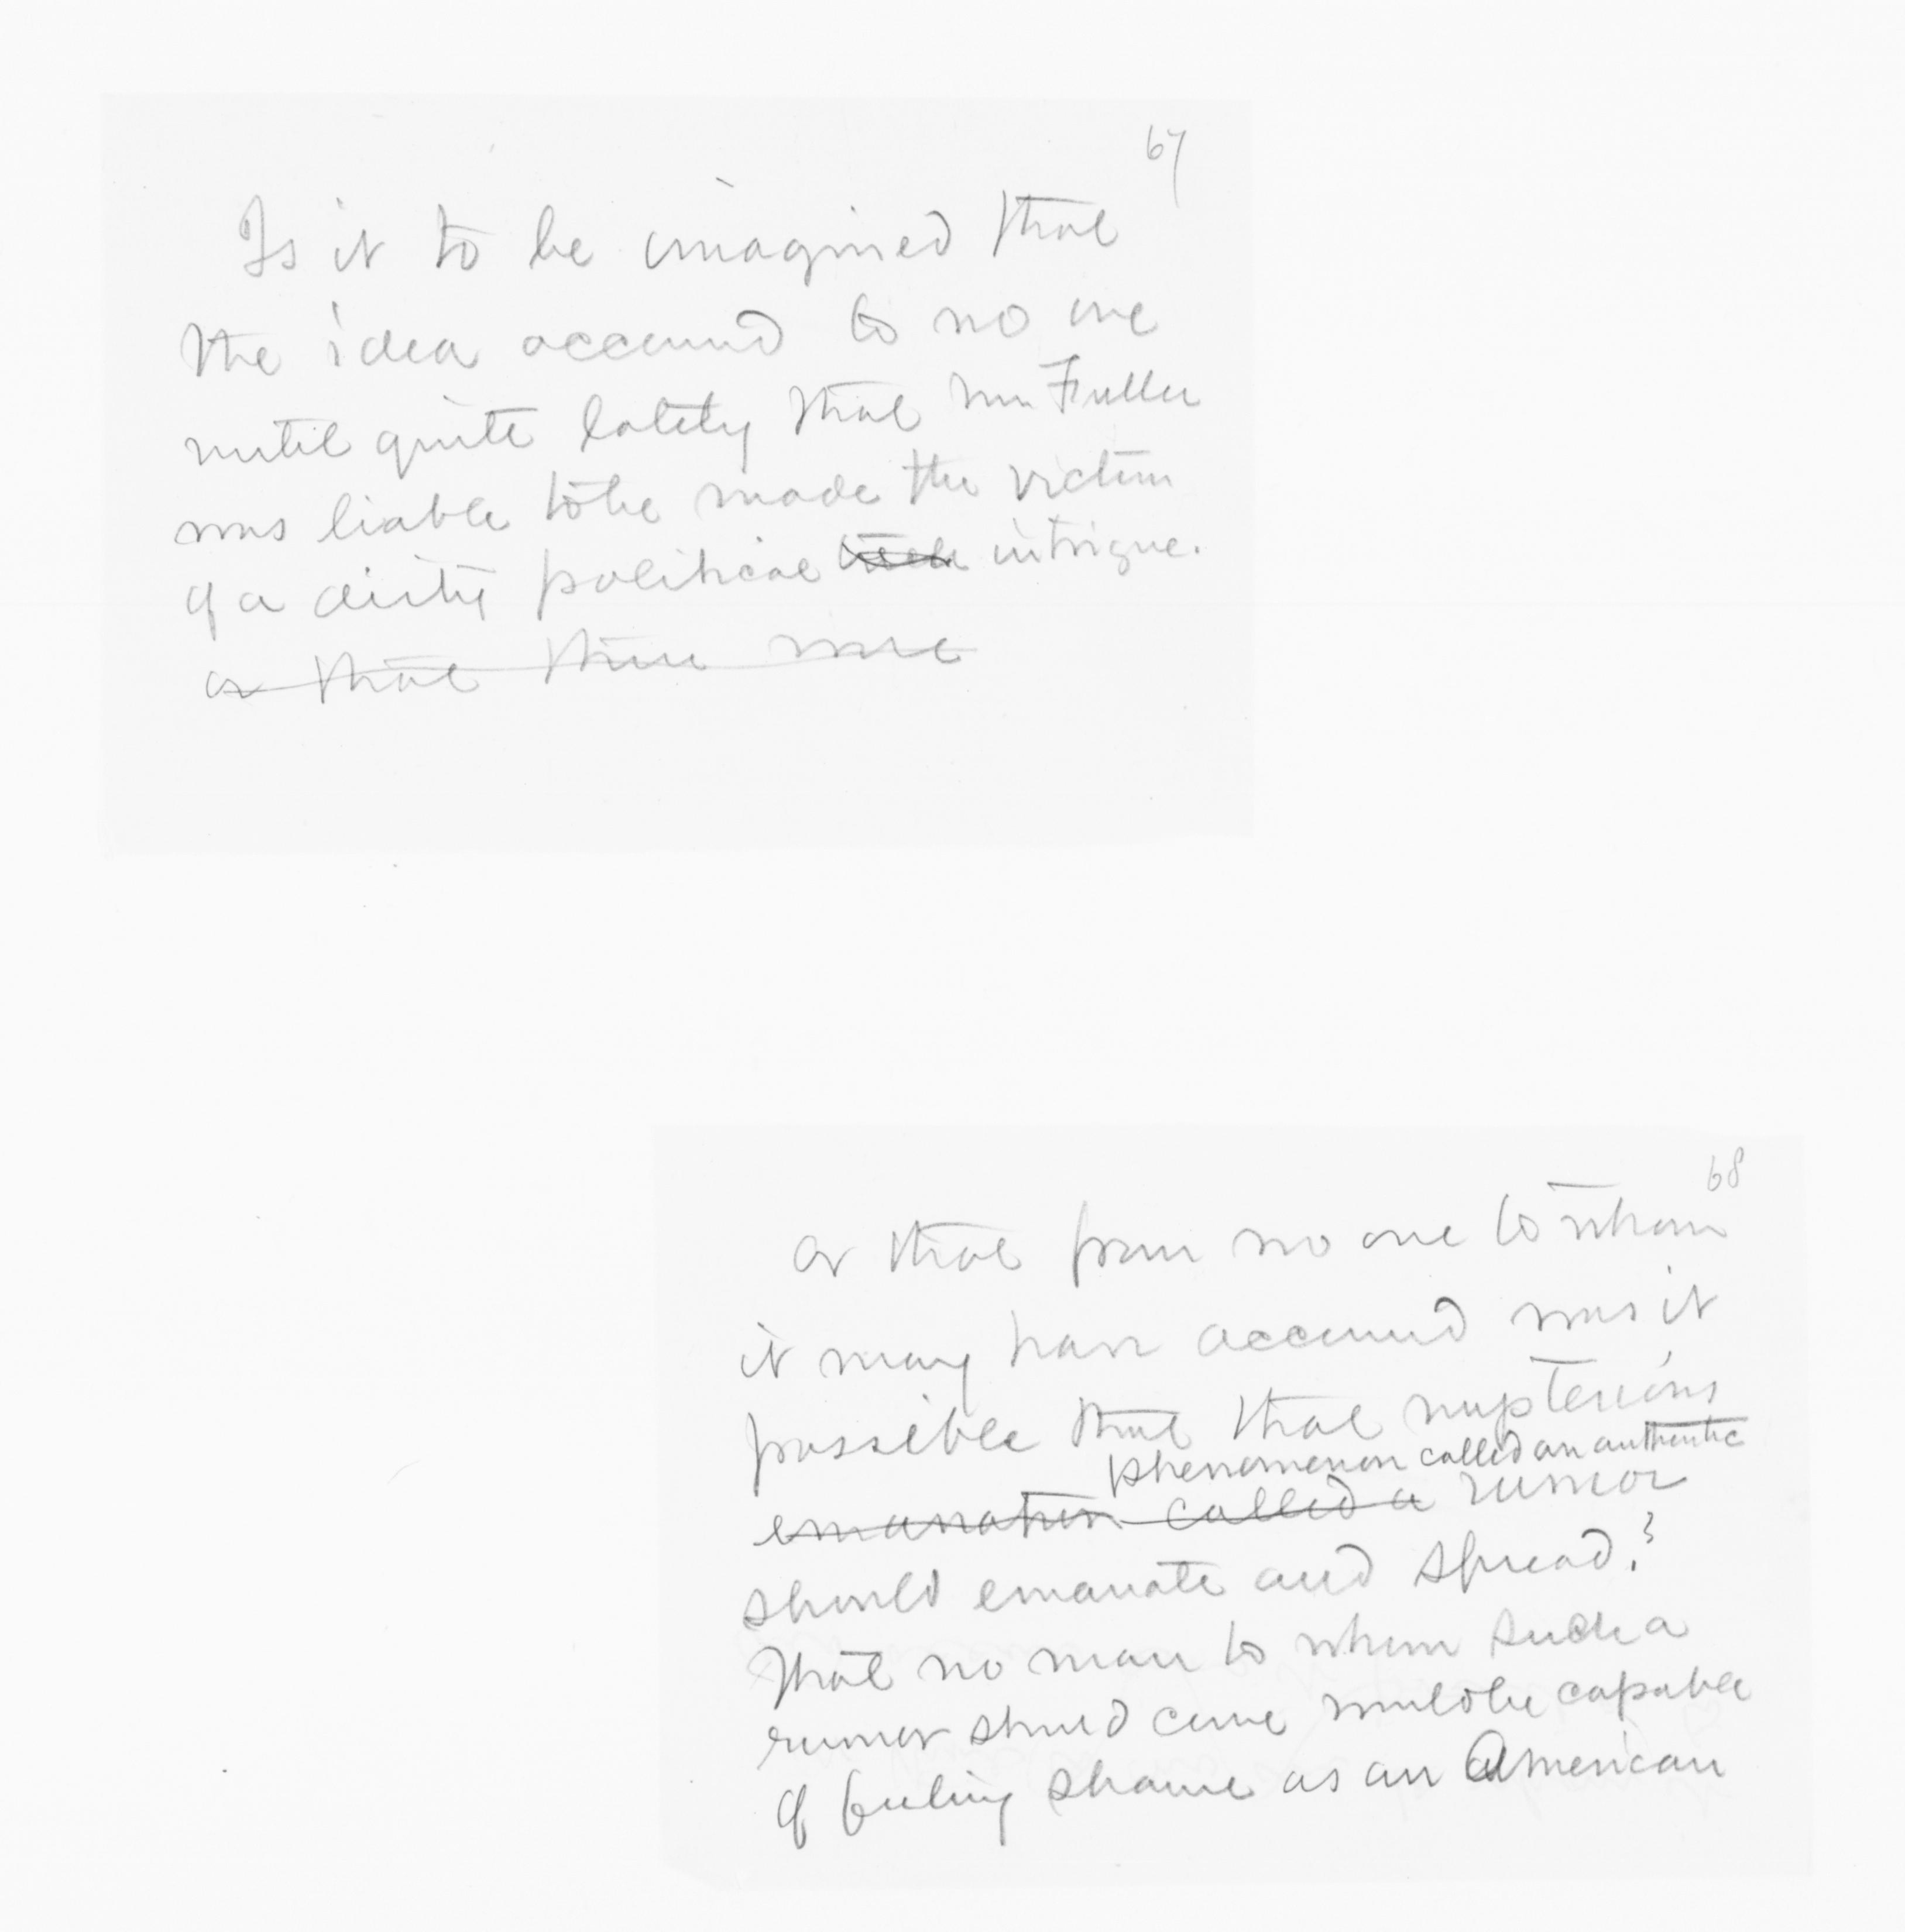 67
Is it to be imagined that
the idea occurred to no one
until quite lately that Mr Fuller
was liable to be made the victim
of a dirty political trick intrigue.
or that there were
68
or that from no one to whom
it may have occurred was it
possible that that mysterious
phenomenon called an authentic
emanation called a rumor
should emanate and spread?
That no man to whom such a
rumor should come would be capable
of feeling shame as an American